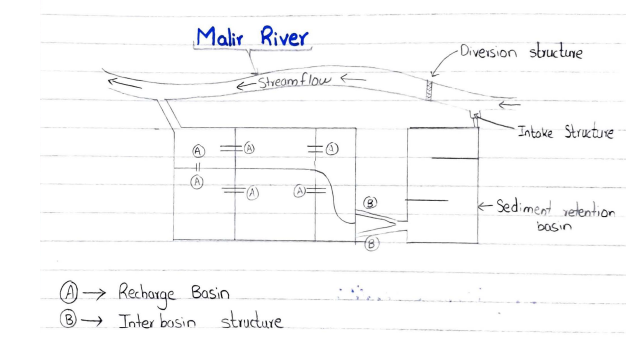 Malir River
Diversion structure
← Streamflow ←
Intake Structure
A
A
A
A
A
A
B
B
← Sediment retention
basin
A → Recharge Basin
B → Inter basin structure